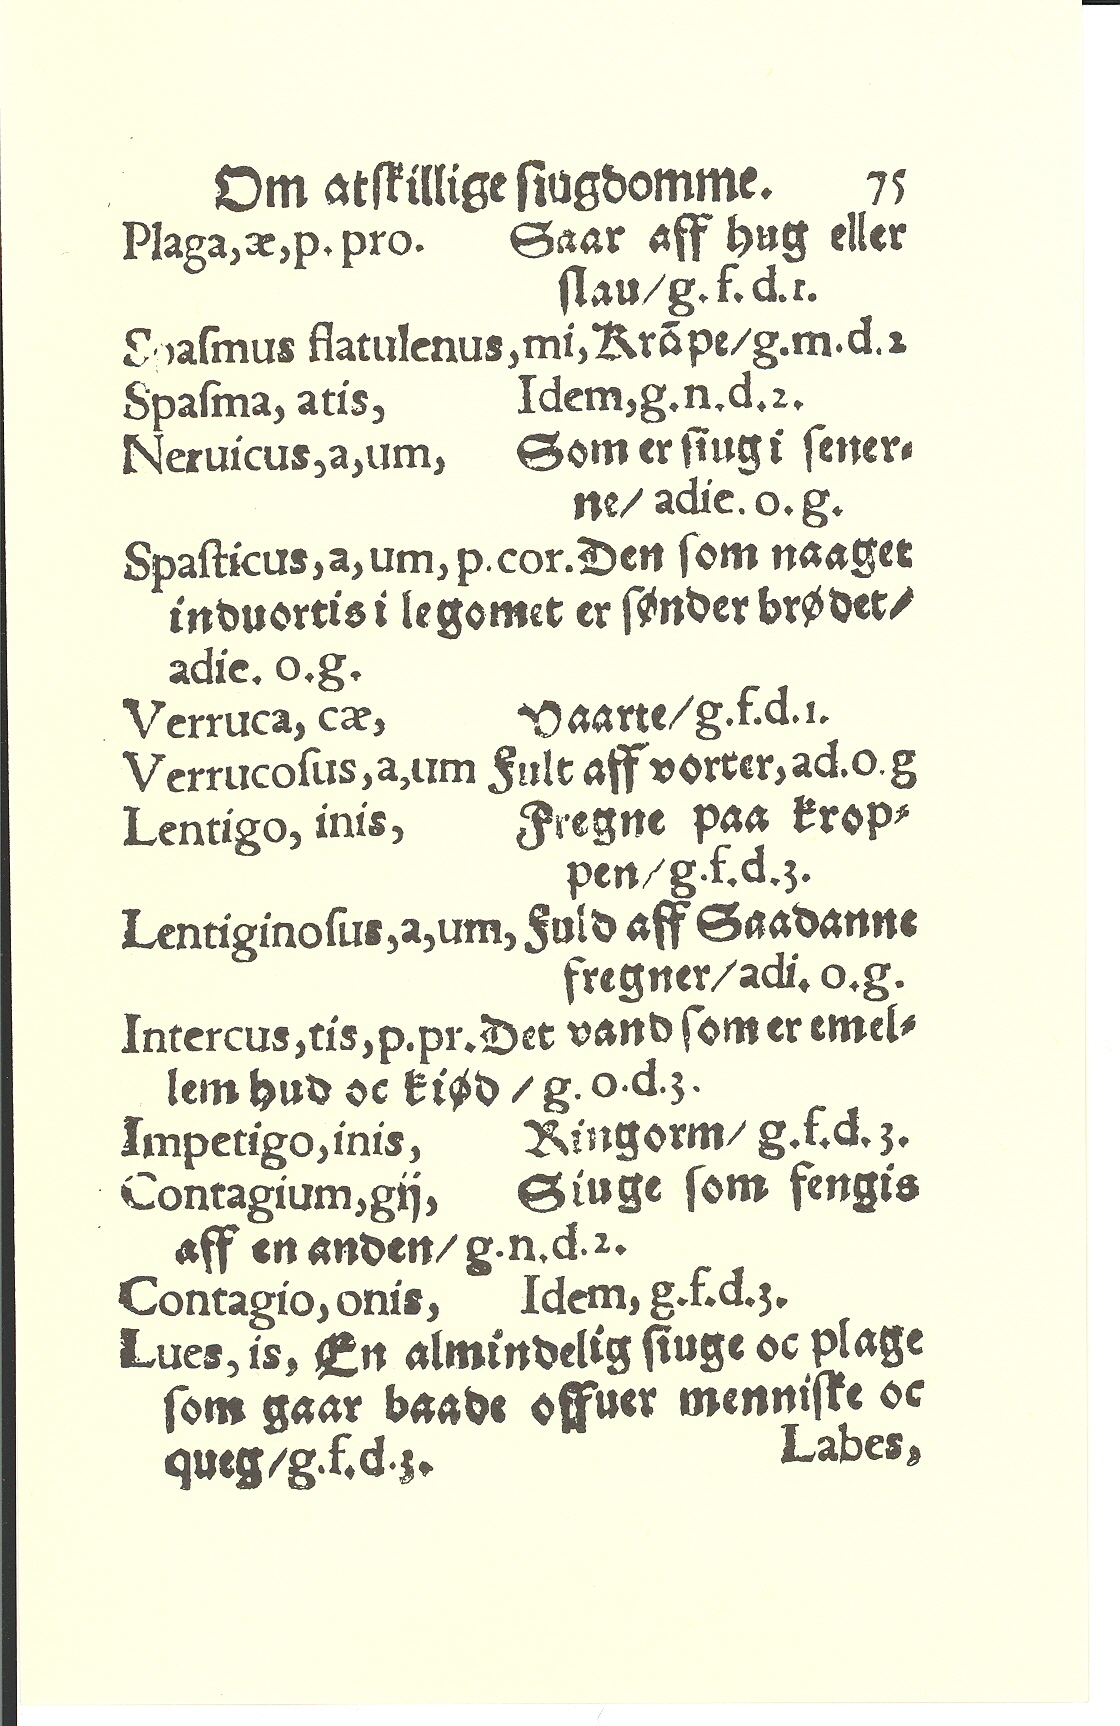 Om atſkillige ſiugdomme. 75
Plaga, æ, p. pro. Saar aff hug eller
ſlau/ g. f. d. 1.
Spaſmus flatulenus, mi, Krāpe/ g. m. d. 2
Spaſma, atis, Idem, g. n. d. 2.
Neruicus, a, um, Som er ſiug i ſener⸗
ne/ adie. o. g.
Spaſticus, a, um, p. cor. Den ſom naaget
induortis i legomet er ſønder brødet/
adie. o. g.
Verruca, cæ, Vaarte/ g. f. d. 1.
Verrucoſus, a, um Fult aff vorter, ad. o. g
Lentigo, inis, Fregne paa krop⸗
pen/ g. f. d. 3.
Lentiginoſus, a, um, Fuld aff Saadanne
fregner/ adi. o. g.
Intercus, tis, p. pr. Det vand ſom er emel⸗
lem hud oc kiød / g. o. d. 3.
Impetigo, inis, Ringorm/ g. f. d. 3.
Contagium, gij, Siuge ſom fengis
aff en anden/ g. n. d. 2.
Contagio, onis, Idem, g. f. d. 3.
Lues, is, En almindelig ſiuge oc plage
ſom gaar baade offuer menniſke oc
queg/ g. f. d. 3. Labes,